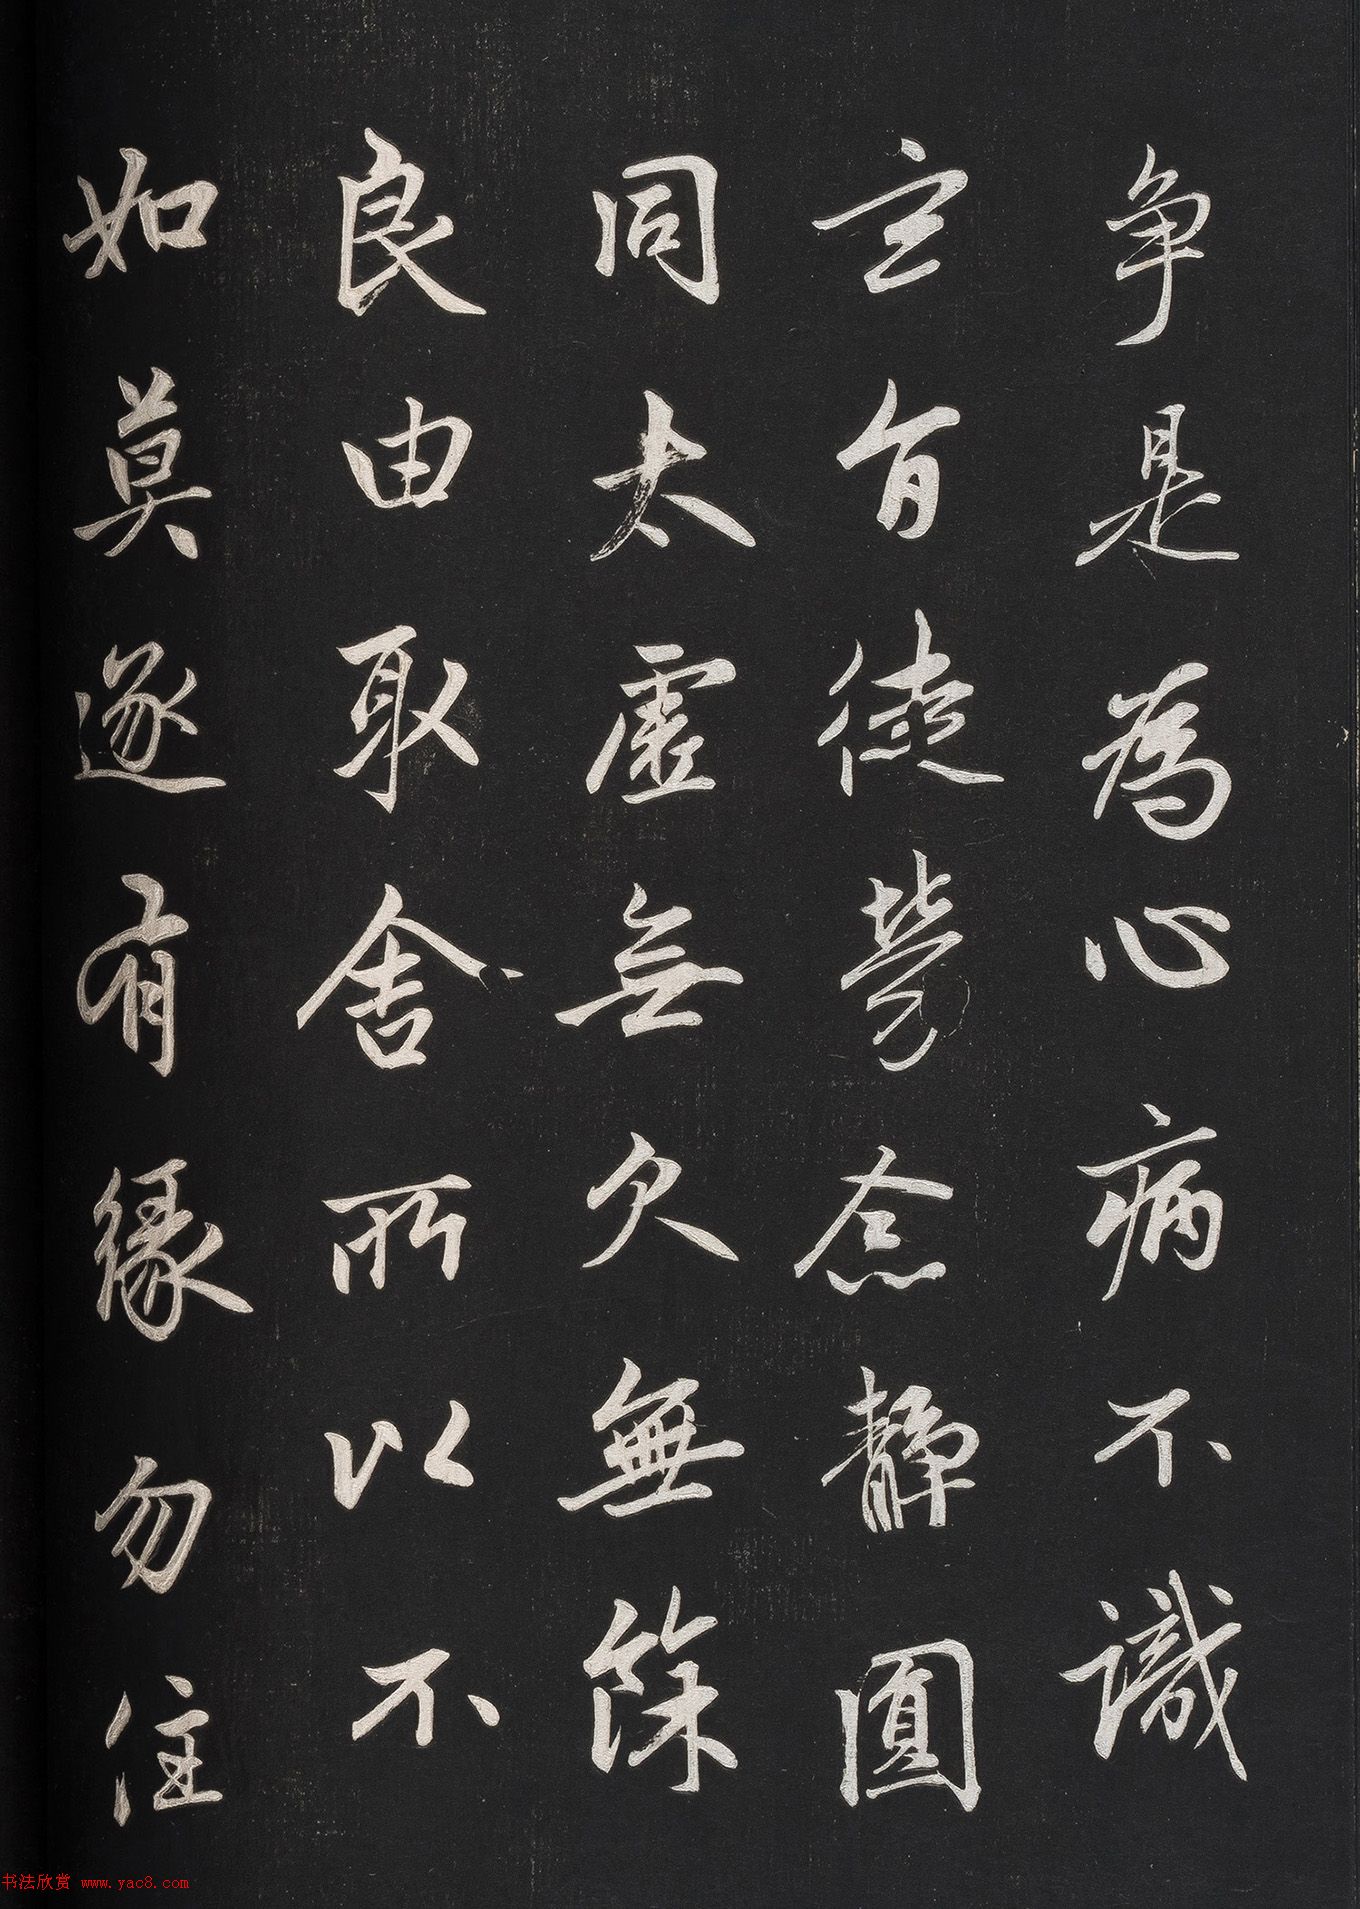 争是為心病不識
玄旨徒勞念靜圓
同太虛無欠無餘
良由取舍所以不
如莫逐有緣勿住
书法欣赏 www.yac8.com